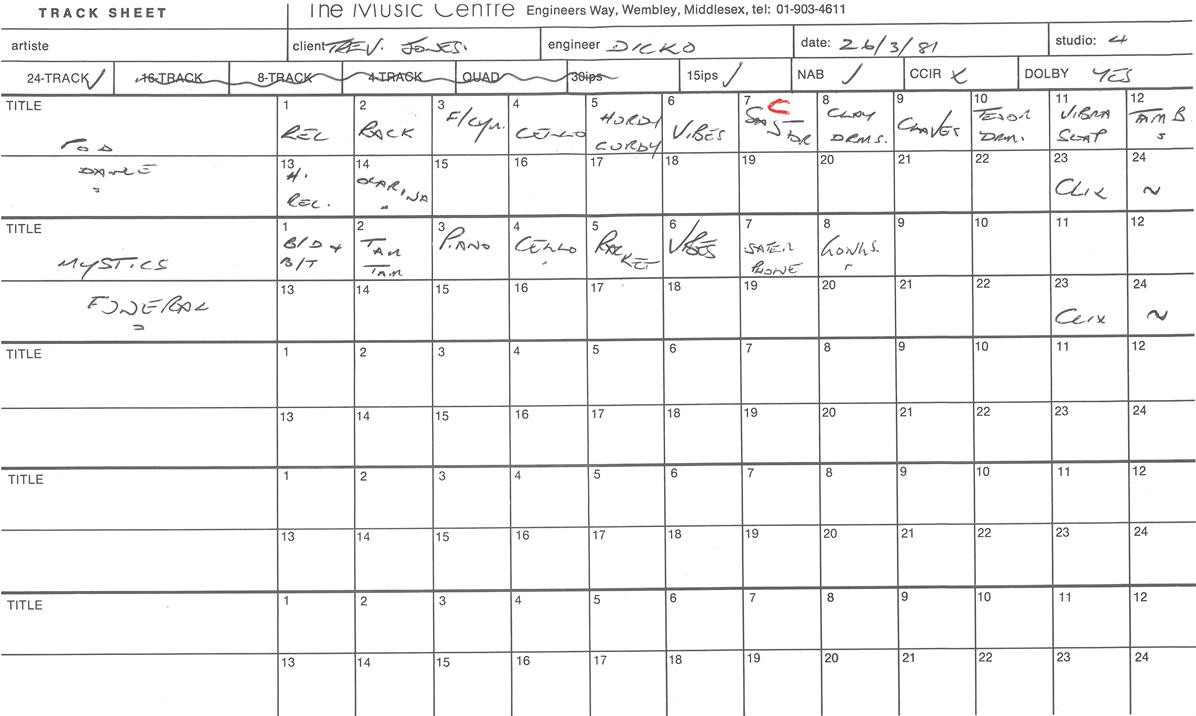 TRACK SHEET The Music Centre Engineers Way, Wembley, Middlesex, tel: 01-903-4611
artiste client TREV. JONES. engineer DICKO date: 26/3/81 studio: 4
24-TRACK ✓ 16-TRACK 8-TRACK 4-TRACK QUAD 30ips 15ips ✓ NAB ✓ CCIR X DOLBY YES
TITLE 1 2 3 4 5 6 7 C 8 9 10 11 12
POD REC RACK F/CYM. CELLO HURDY GURDY VIBES CLAY DRMS. CLAVES TENOR DRM. VIBRA SLAP TAMB.
DANCE 13 14 15 16 17 18 19 20 21 22 23 24
H. REC. OCARINA CLIX ~
TITLE 1 2 3 4 5 6 7 8 9 10 11 12
MYSTICS B/D + B/T TAM TAM PIANO CELLO RACKET VIBES WATER PHONE GONGS.
13 14 15 16 17 18 19 20 21 22 23 24
FUNERAL CLIX ~
TITLE 1 2 3 4 5 6 7 8 9 10 11 12
13 14 15 16 17 18 19 20 21 22 23 24
TITLE 1 2 3 4 5 6 7 8 9 10 11 12
13 14 15 16 17 18 19 20 21 22 23 24
TITLE 1 2 3 4 5 6 7 8 9 10 11 12
13 14 15 16 17 18 19 20 21 22 23 24